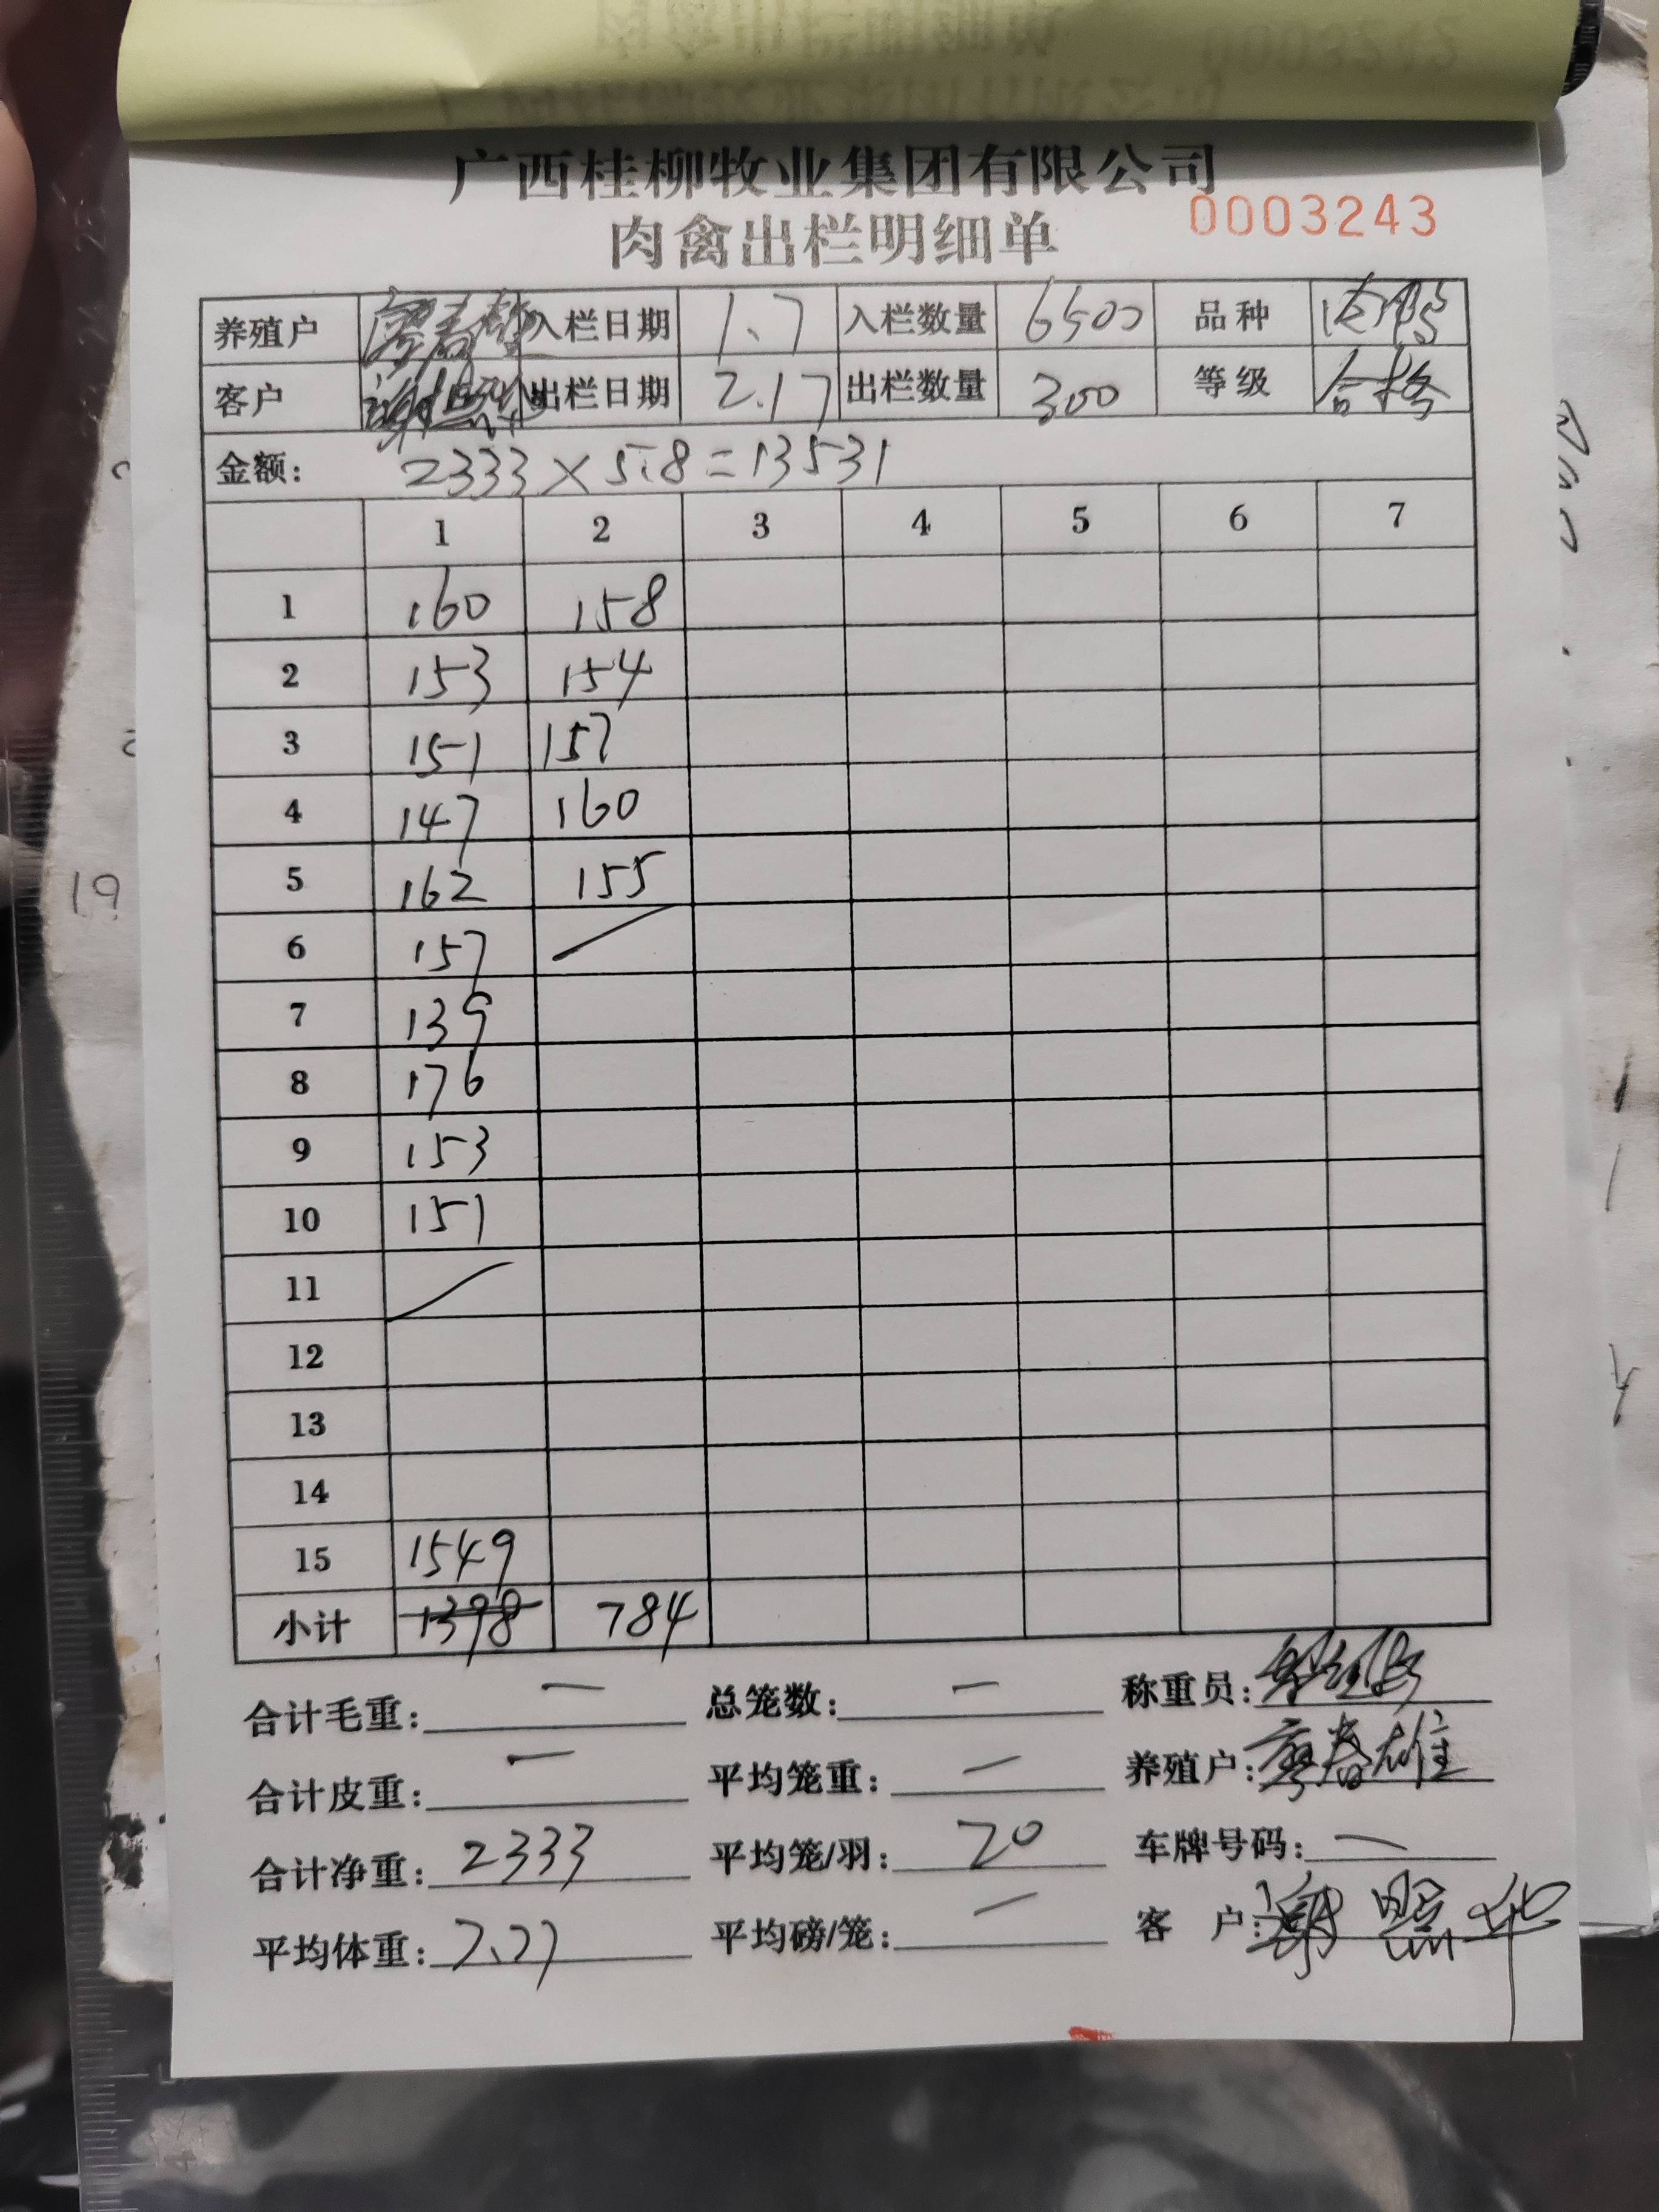 广西桂柳牧业集团有限公司
肉禽出栏明细单 0003243
养殖户 廖春雄 入栏日期 1.7 入栏数量 6500 品种
客户 谢照华 出栏日期 2.17 出栏数量 300 等级 合格
金额: 2333×5.8=13531
1 2 3 4 5 6 7
1 160 158
2 153 154
3 151 157
4 147 160
5 162 155
6 157
7 139
8 176
9 153
10 151
11
12
13
14
15 1549
小计 1398 784
合计毛重: 一 总笼数: 一 称重员:
合计皮重: 一 平均笼重: 一 养殖户: 廖春雄
合计净重: 2333 平均笼/羽: 20 车牌号码: 一
平均体重: 7.77 平均磅/笼: 一 客 户: 谢照华
19